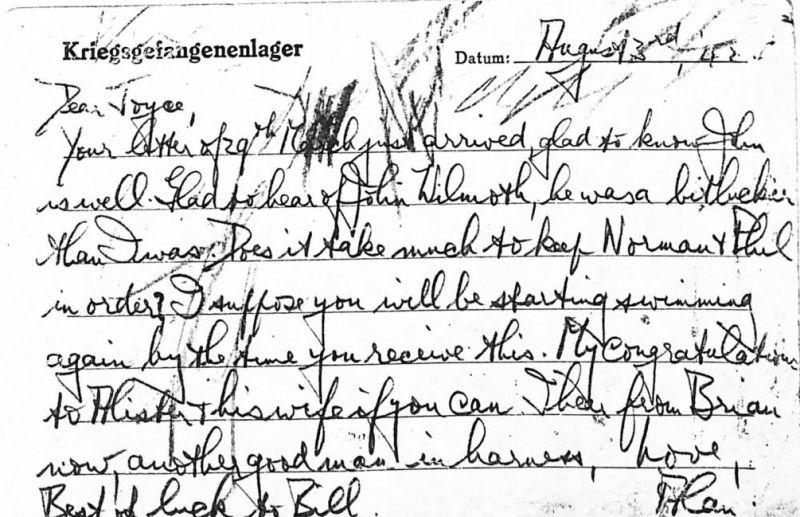 Kriegsgefangenenlager Datum: August 3rd, 42.
Dear Joyce,
Your letter of 29th March just arrived, glad to know John
is well. Glad to hear of John Wilmoth, he was a bit luckier
than I was. Does it take much to keep Norman & Phil
in order? I suppose you will be starting swimming
again by the time you receive this. My Congratulations
to Alister & his wife if you can. I hear from Brian
now, another good man in harness, Love,
Best of luck to Bill. Alan.